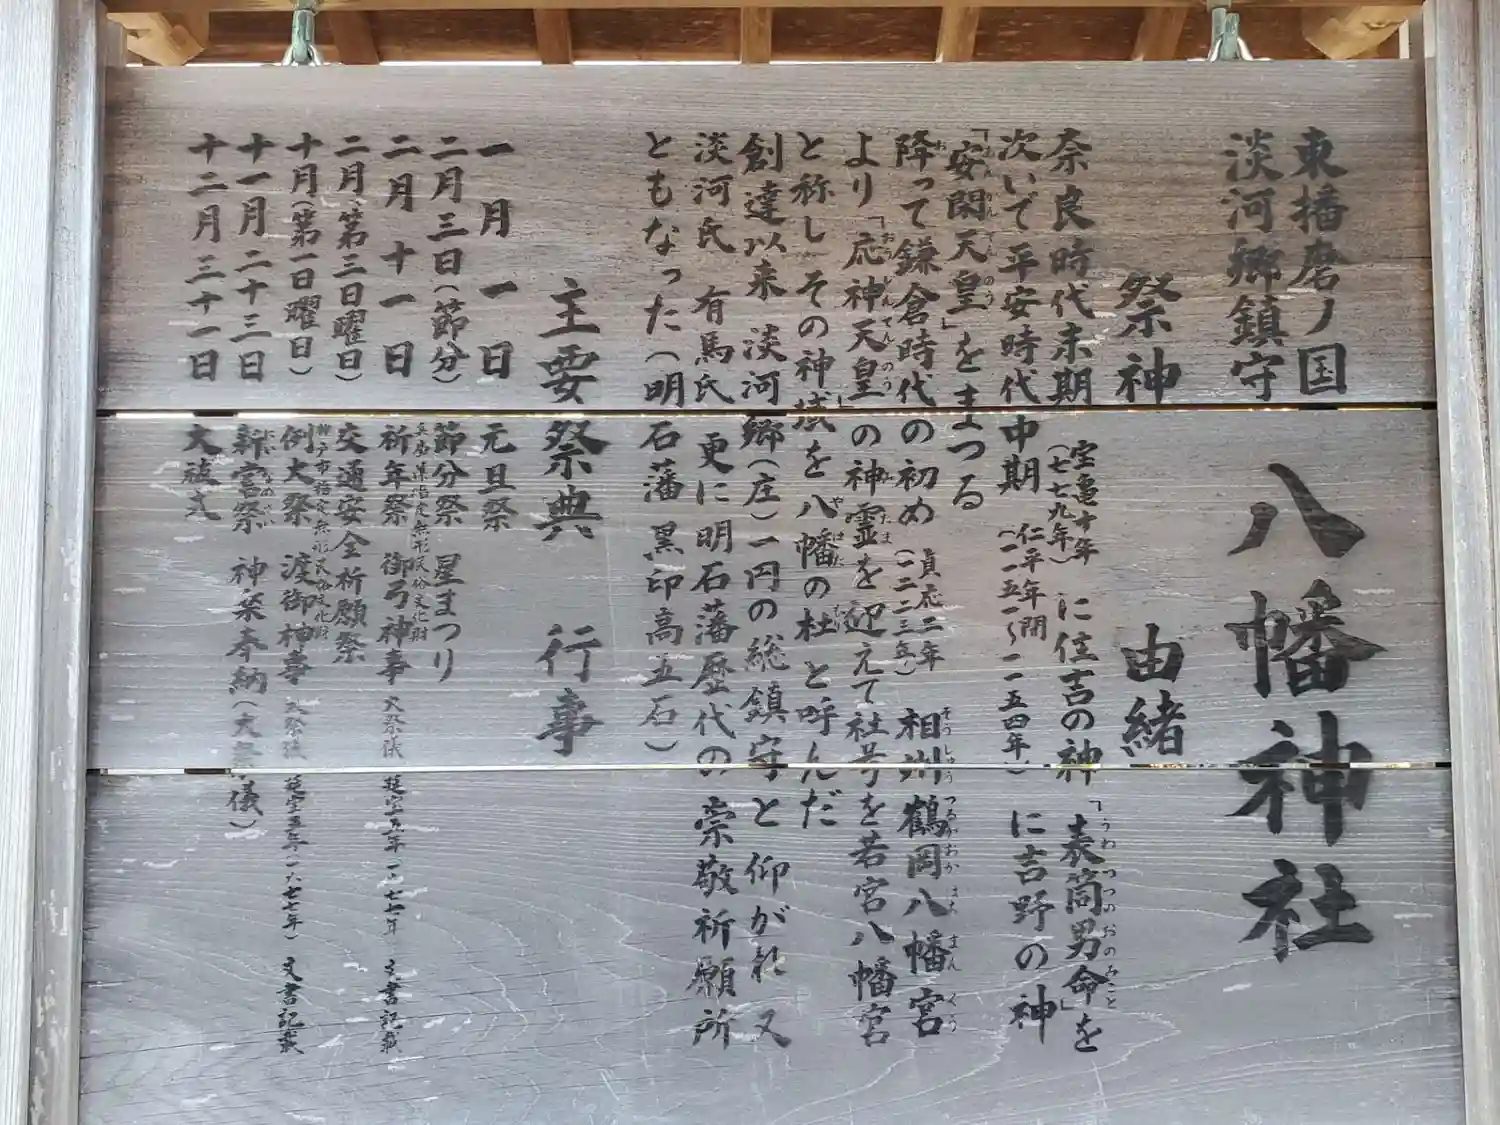 東播磨ノ国
淡河郷鎮守
八幡神社
祭神 由緒
奈良時代末期(宝亀十年 七七九年)に住吉の神「表筒男命」を
次いで平安時代中期 仁平年間(一一五一〜一一五四年)に吉野の神
「安閑天皇」をまつる
降って鎌倉時代の初め(貞応二年 一二二三年)相州鶴岡八幡宮
より「応神天皇」の神霊を迎えて社号を若宮八幡宮
と称しその神域を八幡の杜と呼んだ
創達以来 淡河郷(庄)一円の総鎮守と仰がれ又
淡河氏 有馬氏 更に明石藩歴代の崇敬祈願所
ともなった(明石藩 黒印高五石)
主要祭典 行事
一月一日 元旦祭
二月三日(節分) 節分祭 星まつり
兵庫県指定無形民俗文化財
二月十一日 祈年祭 御弓神事 大祭儀 延宝五年(一六七七年) 文書記載
二月、第三日曜日) 交通安全祈願祭
神戸市指定無形民俗文化財
十月(第一日曜日) 例大祭 渡御神事 大祭儀 延宝五年(一六七七年) 文書記載
十一月二十三日 新嘗祭 神楽奉納(大祭儀)
十二月三十一日 大祓式